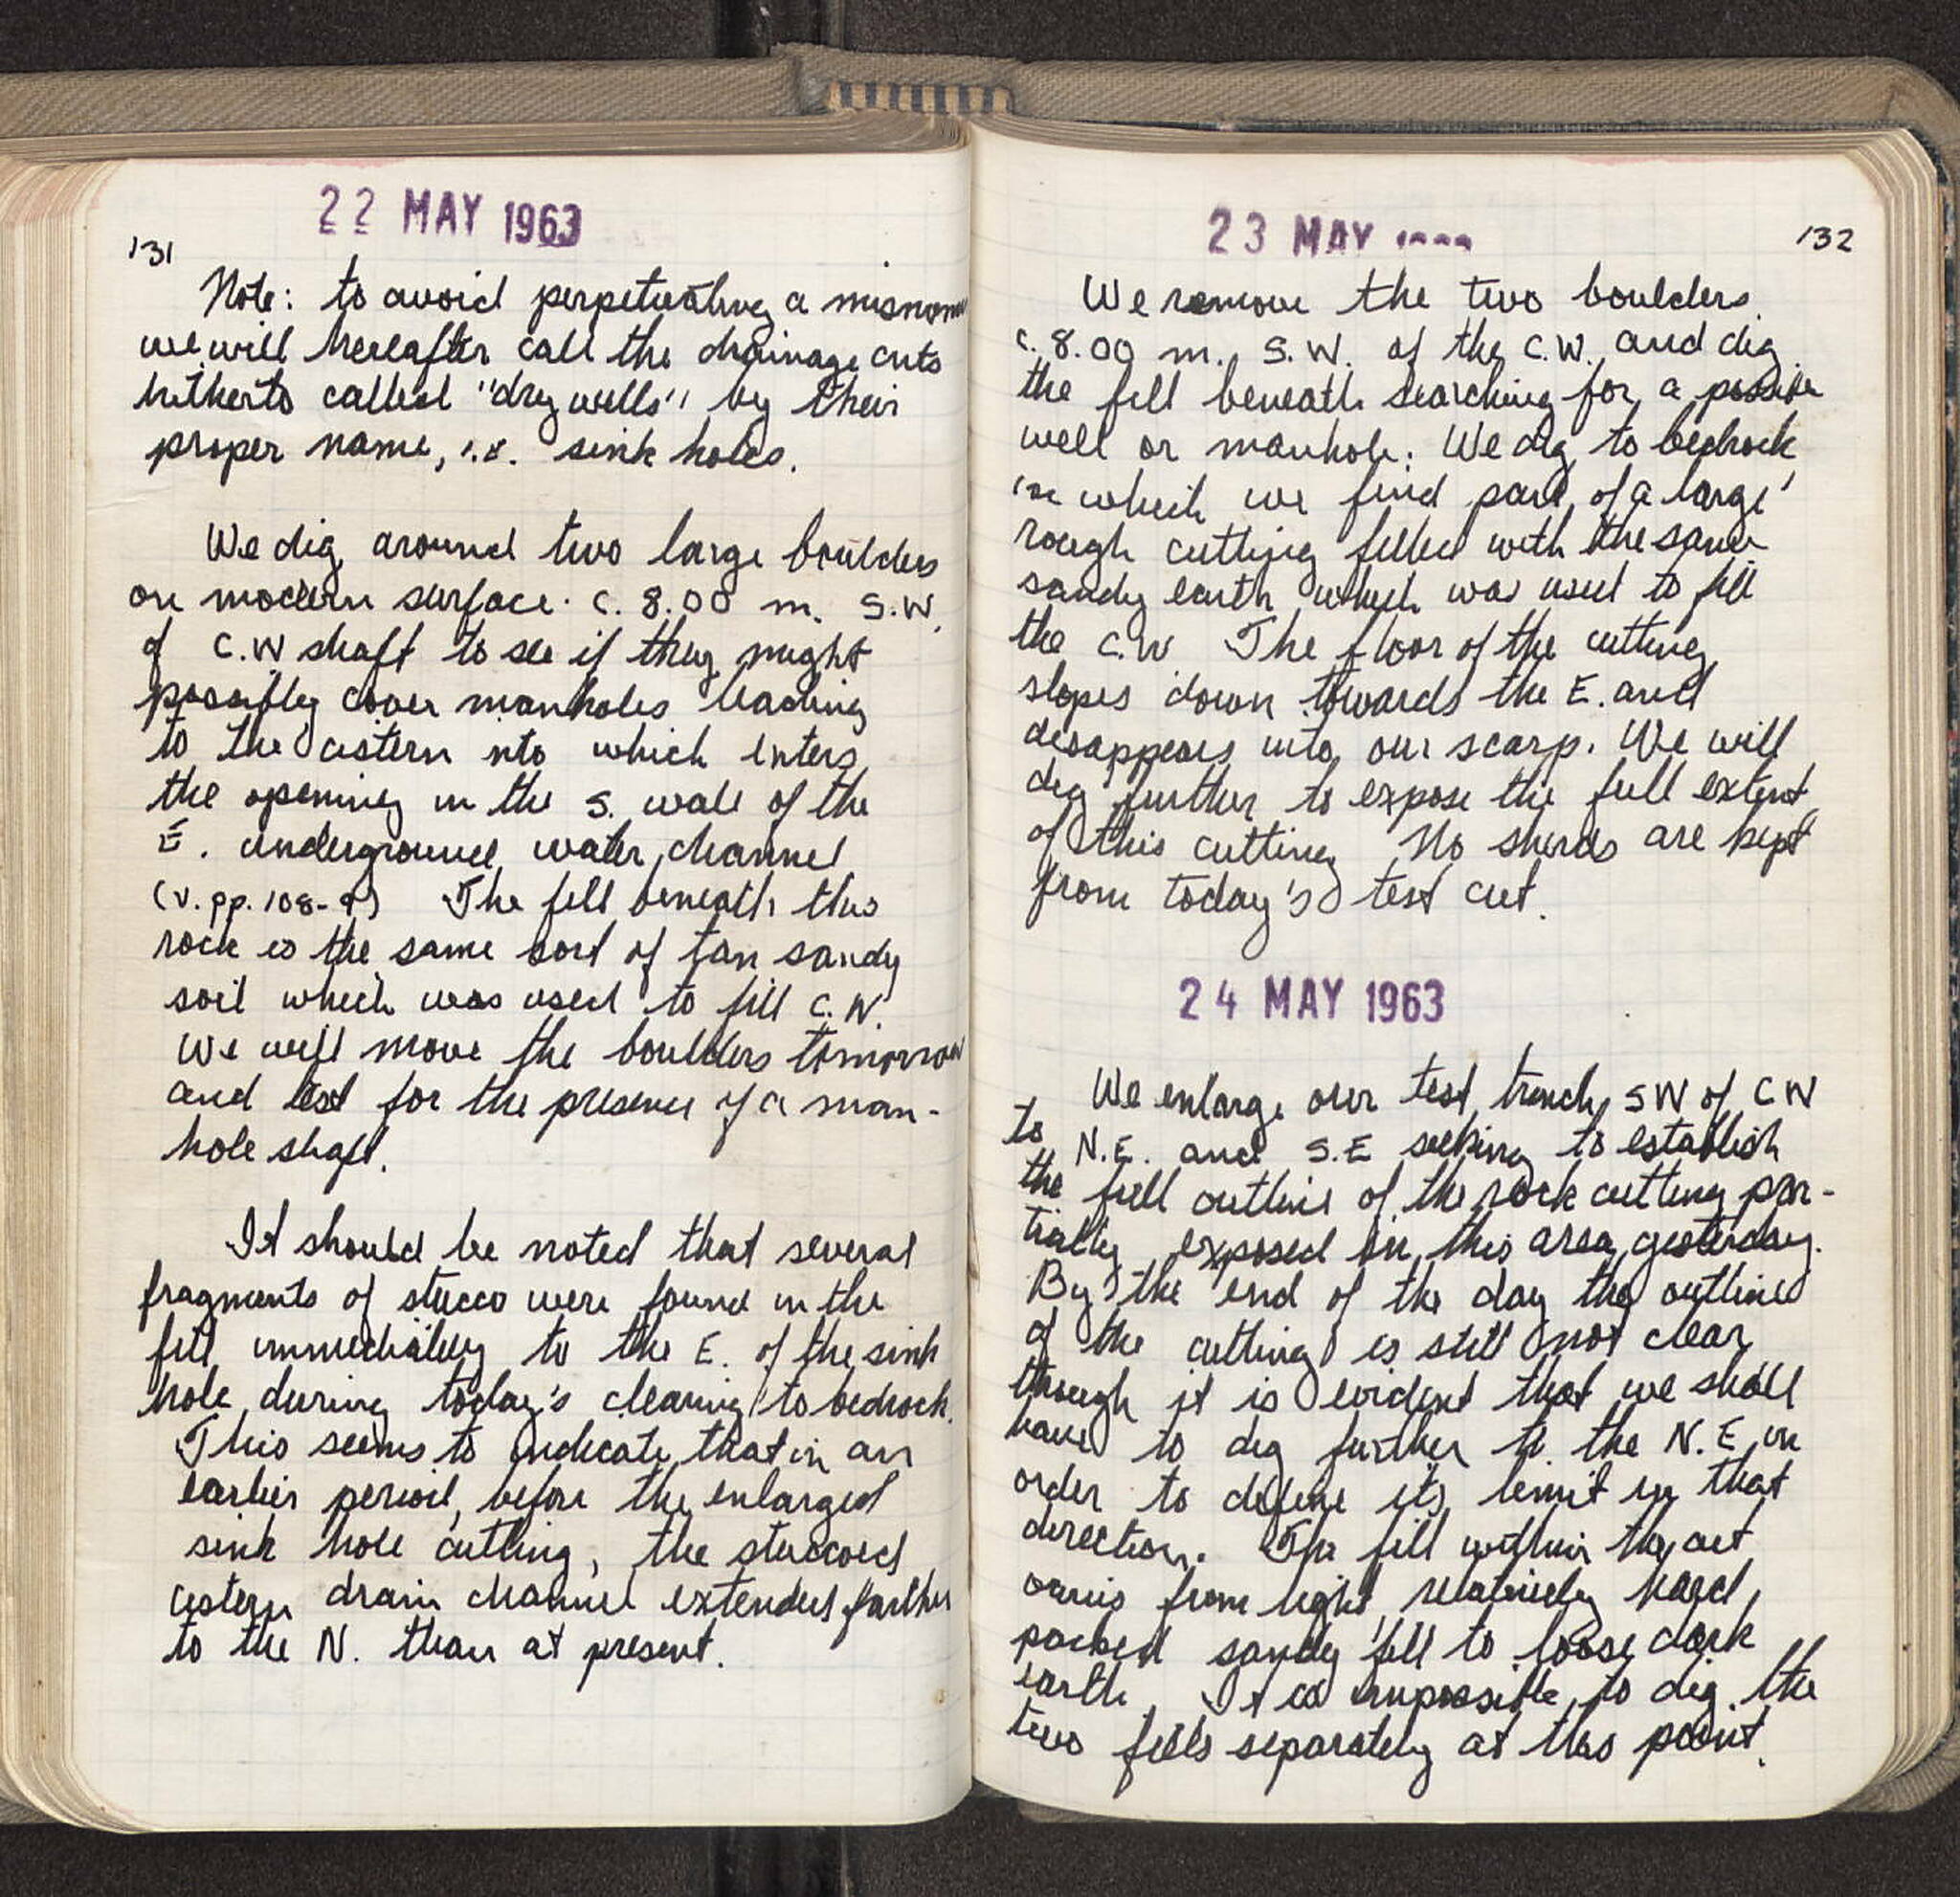 22 MAY 1963
131
Note: to avoid perpetuating a misnom
we will hereafter call the drainage cuts
hitherto called "dry wells" by their
proper name, i.e. sink holes.
We dig around two large boulders
on modern surface c. 8.00 m. S.W.
of C.W shaft to see if they might
possibly cover manholes leading
to the cistern nto which enters
the opening in the S. wall of the
E. underground water channel
(v. pp. 108-9) The fill beneath this
rock is the same sort of tan sandy
soil which was used to fill C.W.
We will move the boulders tomorrow
and test for the presence of a man-
hole shaft.
It should be noted that several
fragments of stucco were found in the
fill immediately to the E. of the sink
hole during today's clearing to bedrock.
This seems to indicate that in an
earlier period, before the enlarged
sink hole cutting, the stuccoed
cistern drain channel extended farther
to the N. than at present.
23 MAY
132
We remove the two boulders
c. 8.00 m. S.W. of the C.W. and dig
the fill beneath searching for a possible
well or manhole. We dig to bedrock
in which we find part of a large
rough cutting filled with the same
sandy earth which was used to fill
the C.W The floor of the cutting
slopes down towards the E. and
disappears into our scarp. We will
dig further to expose the full extent
of this cutting No sherds are kept
from today's test cut.
24 MAY 1963
We enlarge our test trench SW of CW
to N.E. and S.E seeking to establish
the full outline of the rock cutting par-
tially exposed in this area yesterday.
By the end of the day the outline
of the cutting is still not clear
though it is evident that we shall
have to dig further to the N.E in
order to define its limit in that
direction. The fill within the cut
varies from light, relatively hard,
packed sandy fill to loose dark
earth. It is impossible to dig the
two fills separately at this point.